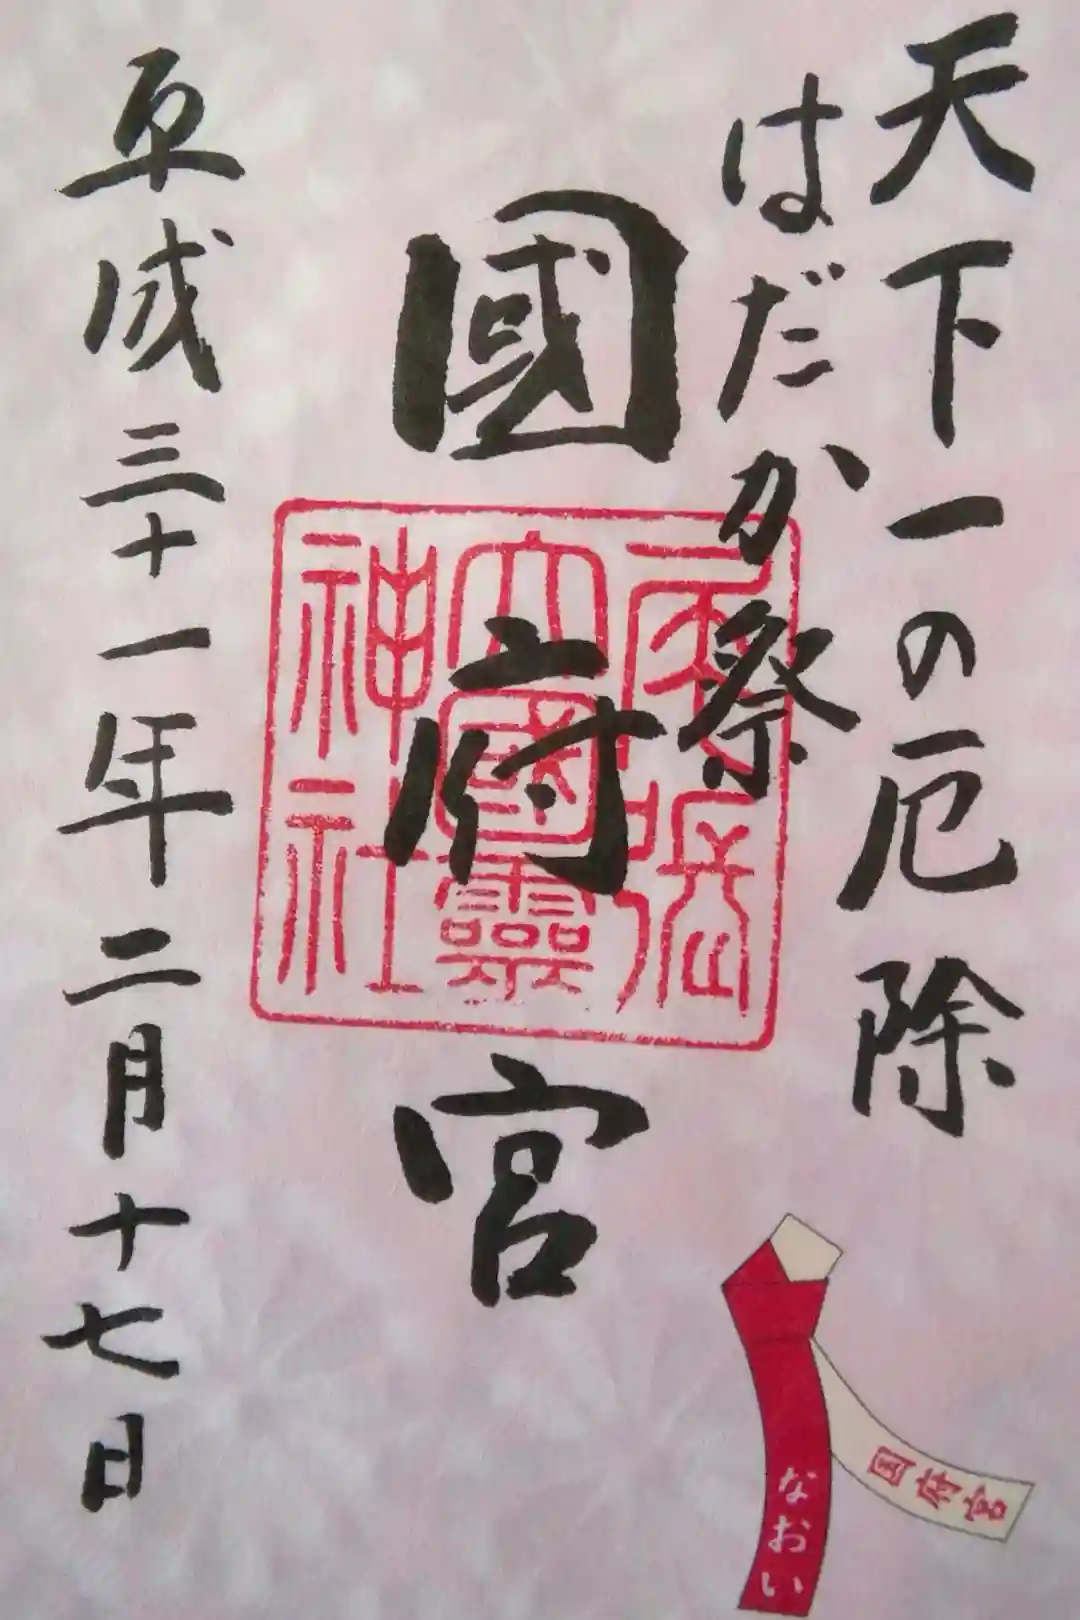 天下一の厄除
はだか祭
國府宮
尾張
大國靈
神社
平成三十一年二月十七日
なおい
国府宮